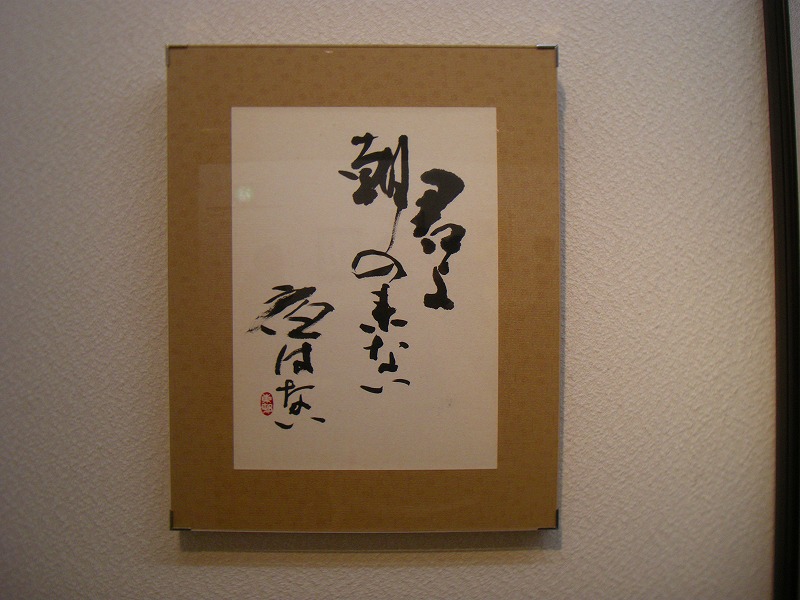 君よ
朝の来ない
夜はない